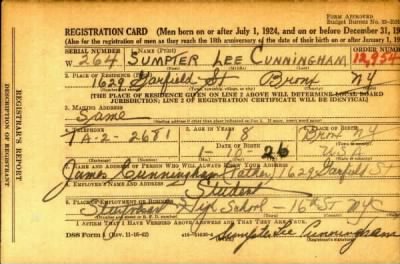 FORM APPROVED
REGISTRATION CARD (Men born on or after July 1, 1924, and on or before December 31, 19
(Also for the registration of men as they reach the 18th anniversary of the date of their birth on or after January 1, 19
SERIAL NUMBER
1. NAME (Print)
ORDER NUMBER
W- 264 SUMPTER LEE CUNNINGHAM 12,954
2. PLACE OF RESIDENCE (Print)
1629 Garfield St Bronx NY
(THE PLACE OF RESIDENCE GIVEN ON LINE 2 ABOVE WILL DETERMINE LOCAL BOARD
JURISDICTION; LINE 2 OF REGISTRATION CERTIFICATE WILL BE IDENTICAL)
3. MAILING ADDRESS
Same
4. TELEPHONE
5. AGE IN YEARS
TA-2-2681 18 Bronx NY
1-10-26
7. NAME AND ADDRESS OF PERSON WHO WILL ALWAYS KNOW YOUR ADDRESS
James Cunningham Father 1629 Garfield St
8. EMPLOYER'S NAME AND ADDRESS
Student
9. PLACE OF EMPLOYMENT OR BUSINESS
Stuyvesant High School - 16th St NYC
I AFFIRM THAT I HAVE VERIFIED ABOVE ANSWERS AND THAT THEY ARE TRUE.
DSS Form 1 (Rev. 11-16-42)
Sumpter Lee Cunningham
REGISTRAR'S REPORT
DESCRIPTION OF REGISTRANT